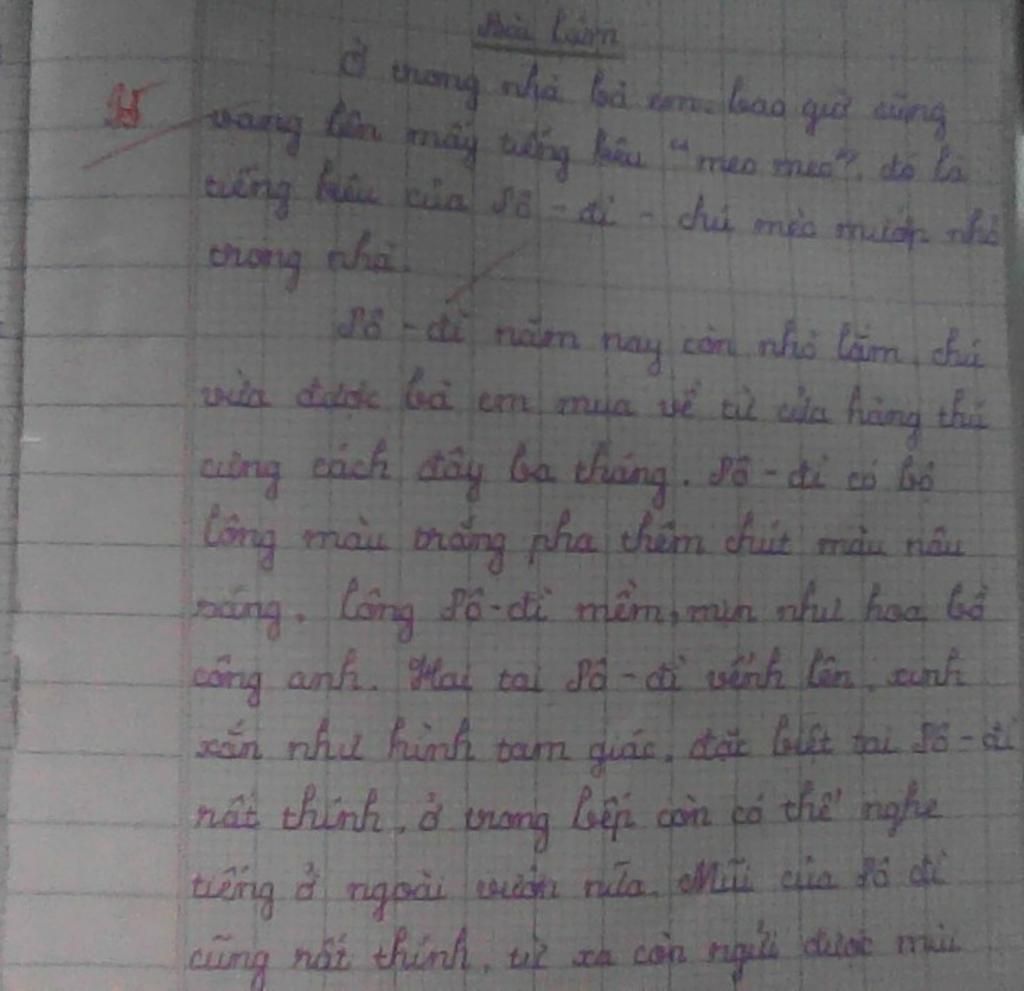 Bài làm
Ở trong nhà bà em bao giờ cũng
vang lên mấy tiếng kêu "meo meo". đó là
tiếng kêu của Sô - đi - chú mèo mướp nhỏ
trong nhà.
Sô - đi năm nay còn nhỏ lắm, chú
vừa được bà em mua về từ cửa hàng thú
cưng cách đây ba tháng. Sô - đi có bộ
lông màu trắng pha thêm chút màu nâu
sáng. Lông Sô - đi mềm, mịn như hoa bồ
công anh. Hai tai Sô - đi vểnh lên, xinh
xắn như hình tam giác, đặc biệt tai Sô - đi
rất thính, ở trong bếp còn có thể nghe
tiếng ở ngoài vườn nữa. Mũi của Sô đi
cũng rất thính, từ xa còn ngửi được mùi